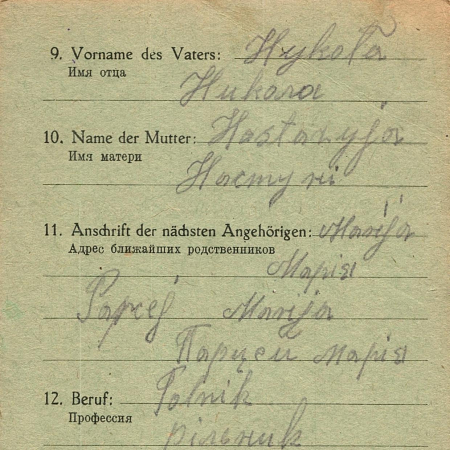 9. Vorname des Vaters: Nykola
Имя отца
Никола
10. Name der Mutter:
Имя матери
11. Anschrift der nächsten Angehörigen: Marija
Адрес ближайших родственников
Марія
Marija
Парцей Марія
12. Beruf: Rolnik
Профессия
рільник